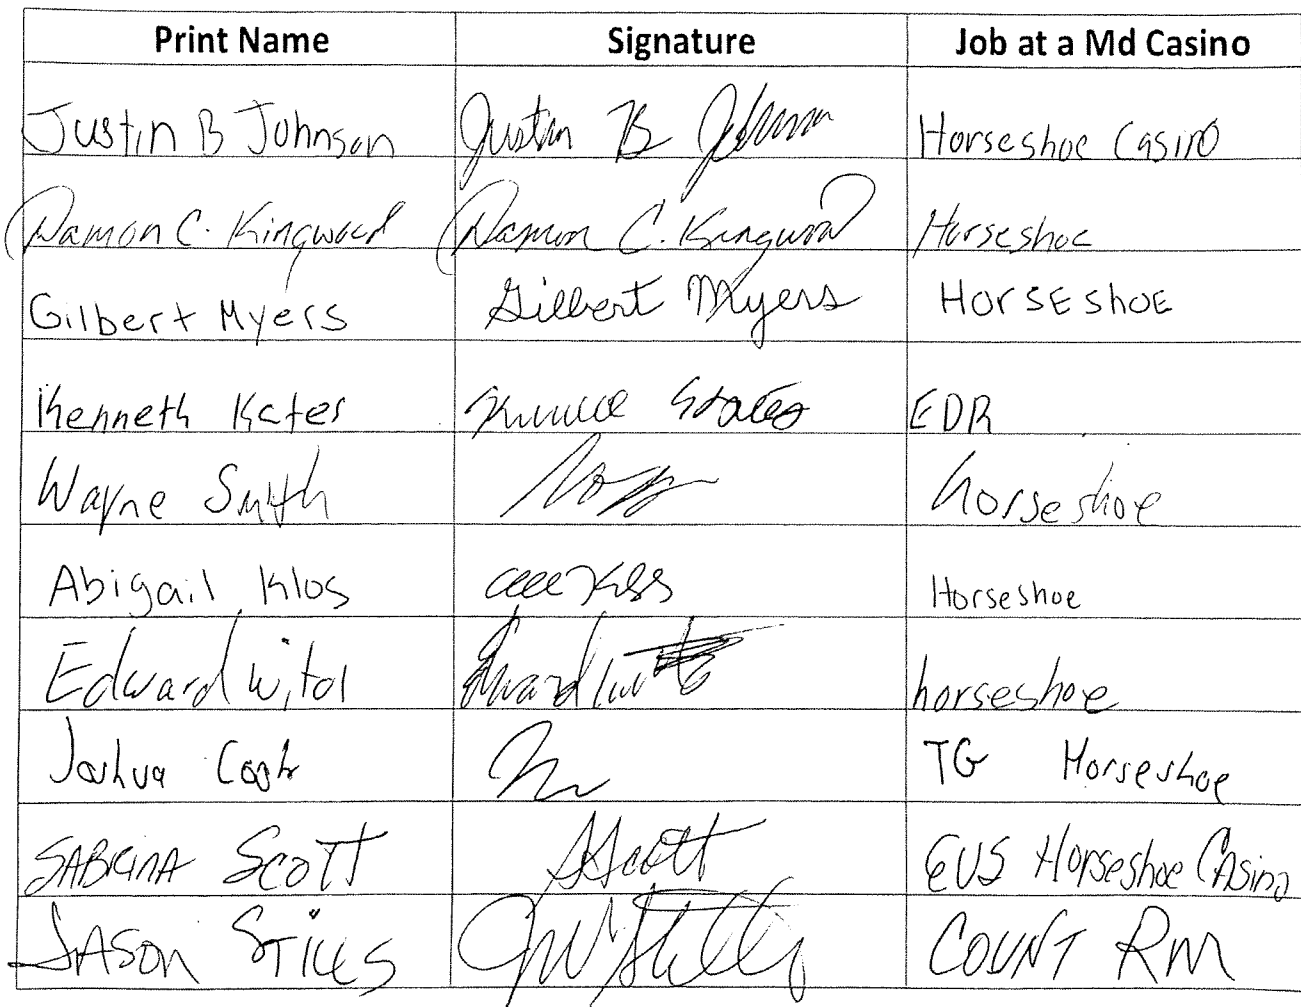 Print Name Signature Job at a Md Casino
Justin B Johnson Justin B Johnson Horseshoe Casino
Damon C. Kingwood Damon C. Kingwood Horseshoe
Gilbert Myers Gilbert Myers Horseshoe
Kenneth Kates EDR
Wayne Smith horseshoe
Abigail Klos Horseshoe
Edward Witol Edward horseshoe
Joshua Cook TG Horseshoe
SABRINA SCOTT SScott EVS Horseshoe Casino
JASON STILES COUNT RM